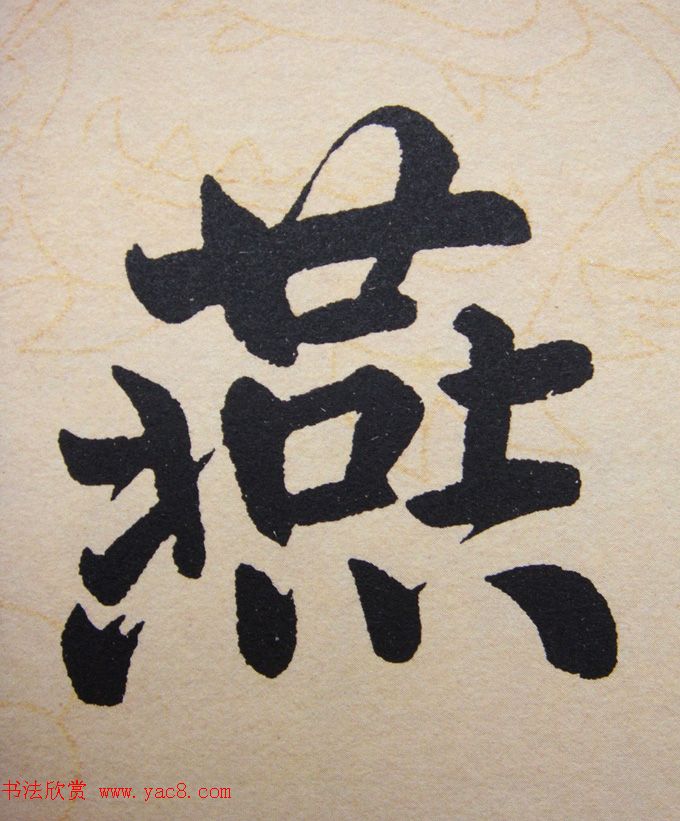 燕
书法欣赏 www.yac8.com